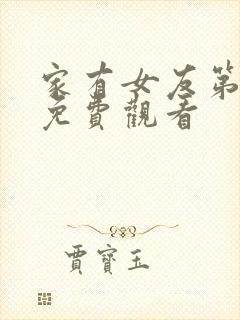 家有女友第
免費觀看
賈寶玉